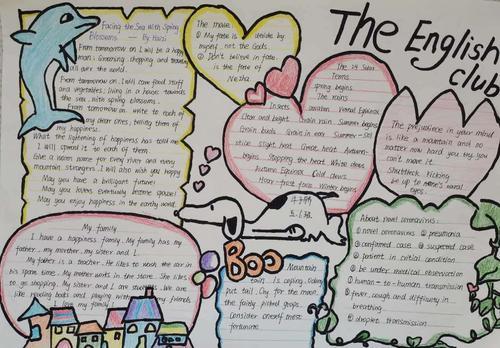 The English
club
Facing the Sea with Spring
Blossoms — By Haizi
From tomorrow on I will be a happy
man. Grooming chopping and traveling
all over the world
From tomorrow on I will care food stuff
and vegetables. living in a house towards
the sea, with spring blossoms.
From tomorrow on write to each of
my dear ones, telling them of
my happiness.
What the lightening of happiness has told me
I will spread it to each of them.
Give a warm name for every river and every
mountain strangers I will also wish you happy
May you have a brilliant future!
May you lovers eventually become spouse!
May you enjoy happiness in the earthly world
The movie
① My fate is by
myself, not the Gods.
② Don't believe in fate.
is the fate of
Nezha
The 24 Solar
Terms
spring begins
The rains
Insects awaken Vernal Equinox
Clear and bright Grain rain Summer begins
Grain buds Grain in ear Summer sol-
stice slight heat Great heat Autumn
begins Stopping the heat White dews
Autumn Equinox Cold dews
Hoar-frost falls Winter begins
The prejudice in your mind
is like a mountain and no
matter how hard you try you
can't move it.
Shuttlecock Kicking
My family
I have a happiness family. My family has my
father, my mother, my sister and I.
My father is a teacher. He likes to wash the car in
his spare time. My mother works in the store. She likes
to go shopping. My sister and I are students. We are
like reading books and playing with my friends
my family!
Boo
Mountain
put tail. Cry for the moon.
Consider oneself most
fortunate
About novel coronavirus:
① novel coronavirus ② pneumonia
③ confirmed case ④ suspected case
⑤ patient in critical condition
⑥ be under medical observation
⑦ human-to-human transmission
⑧ fever, cough and difficulty in
breathing
⑨ droplet transmission